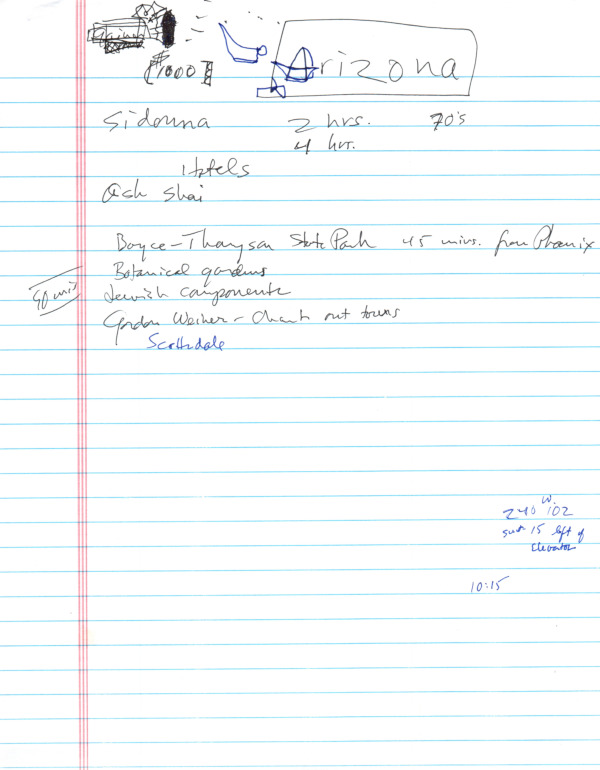 $1000
Arizona
Sidonna 2 hrs. 70's
4 hr.
Hotels
Ask Shai
Boyce-Thompson State Park 45 mins. from Phoenix
Botanical gardens
90 mis Jewish components
Gordon Weiner - Chart out towns
Scottsdale
240 W. 102
suite 15 left of
Elevator
10:15